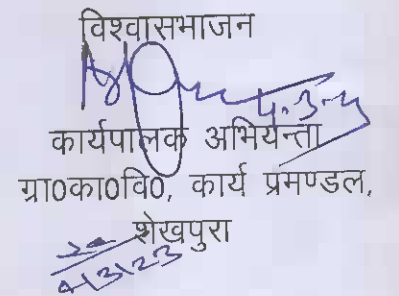 विश्वासभाजन
4.3.
कार्यपालक अभियन्ता
ग्रा0का0वि0, कार्य प्रमण्डल,
शेखपुरा
4/3/23